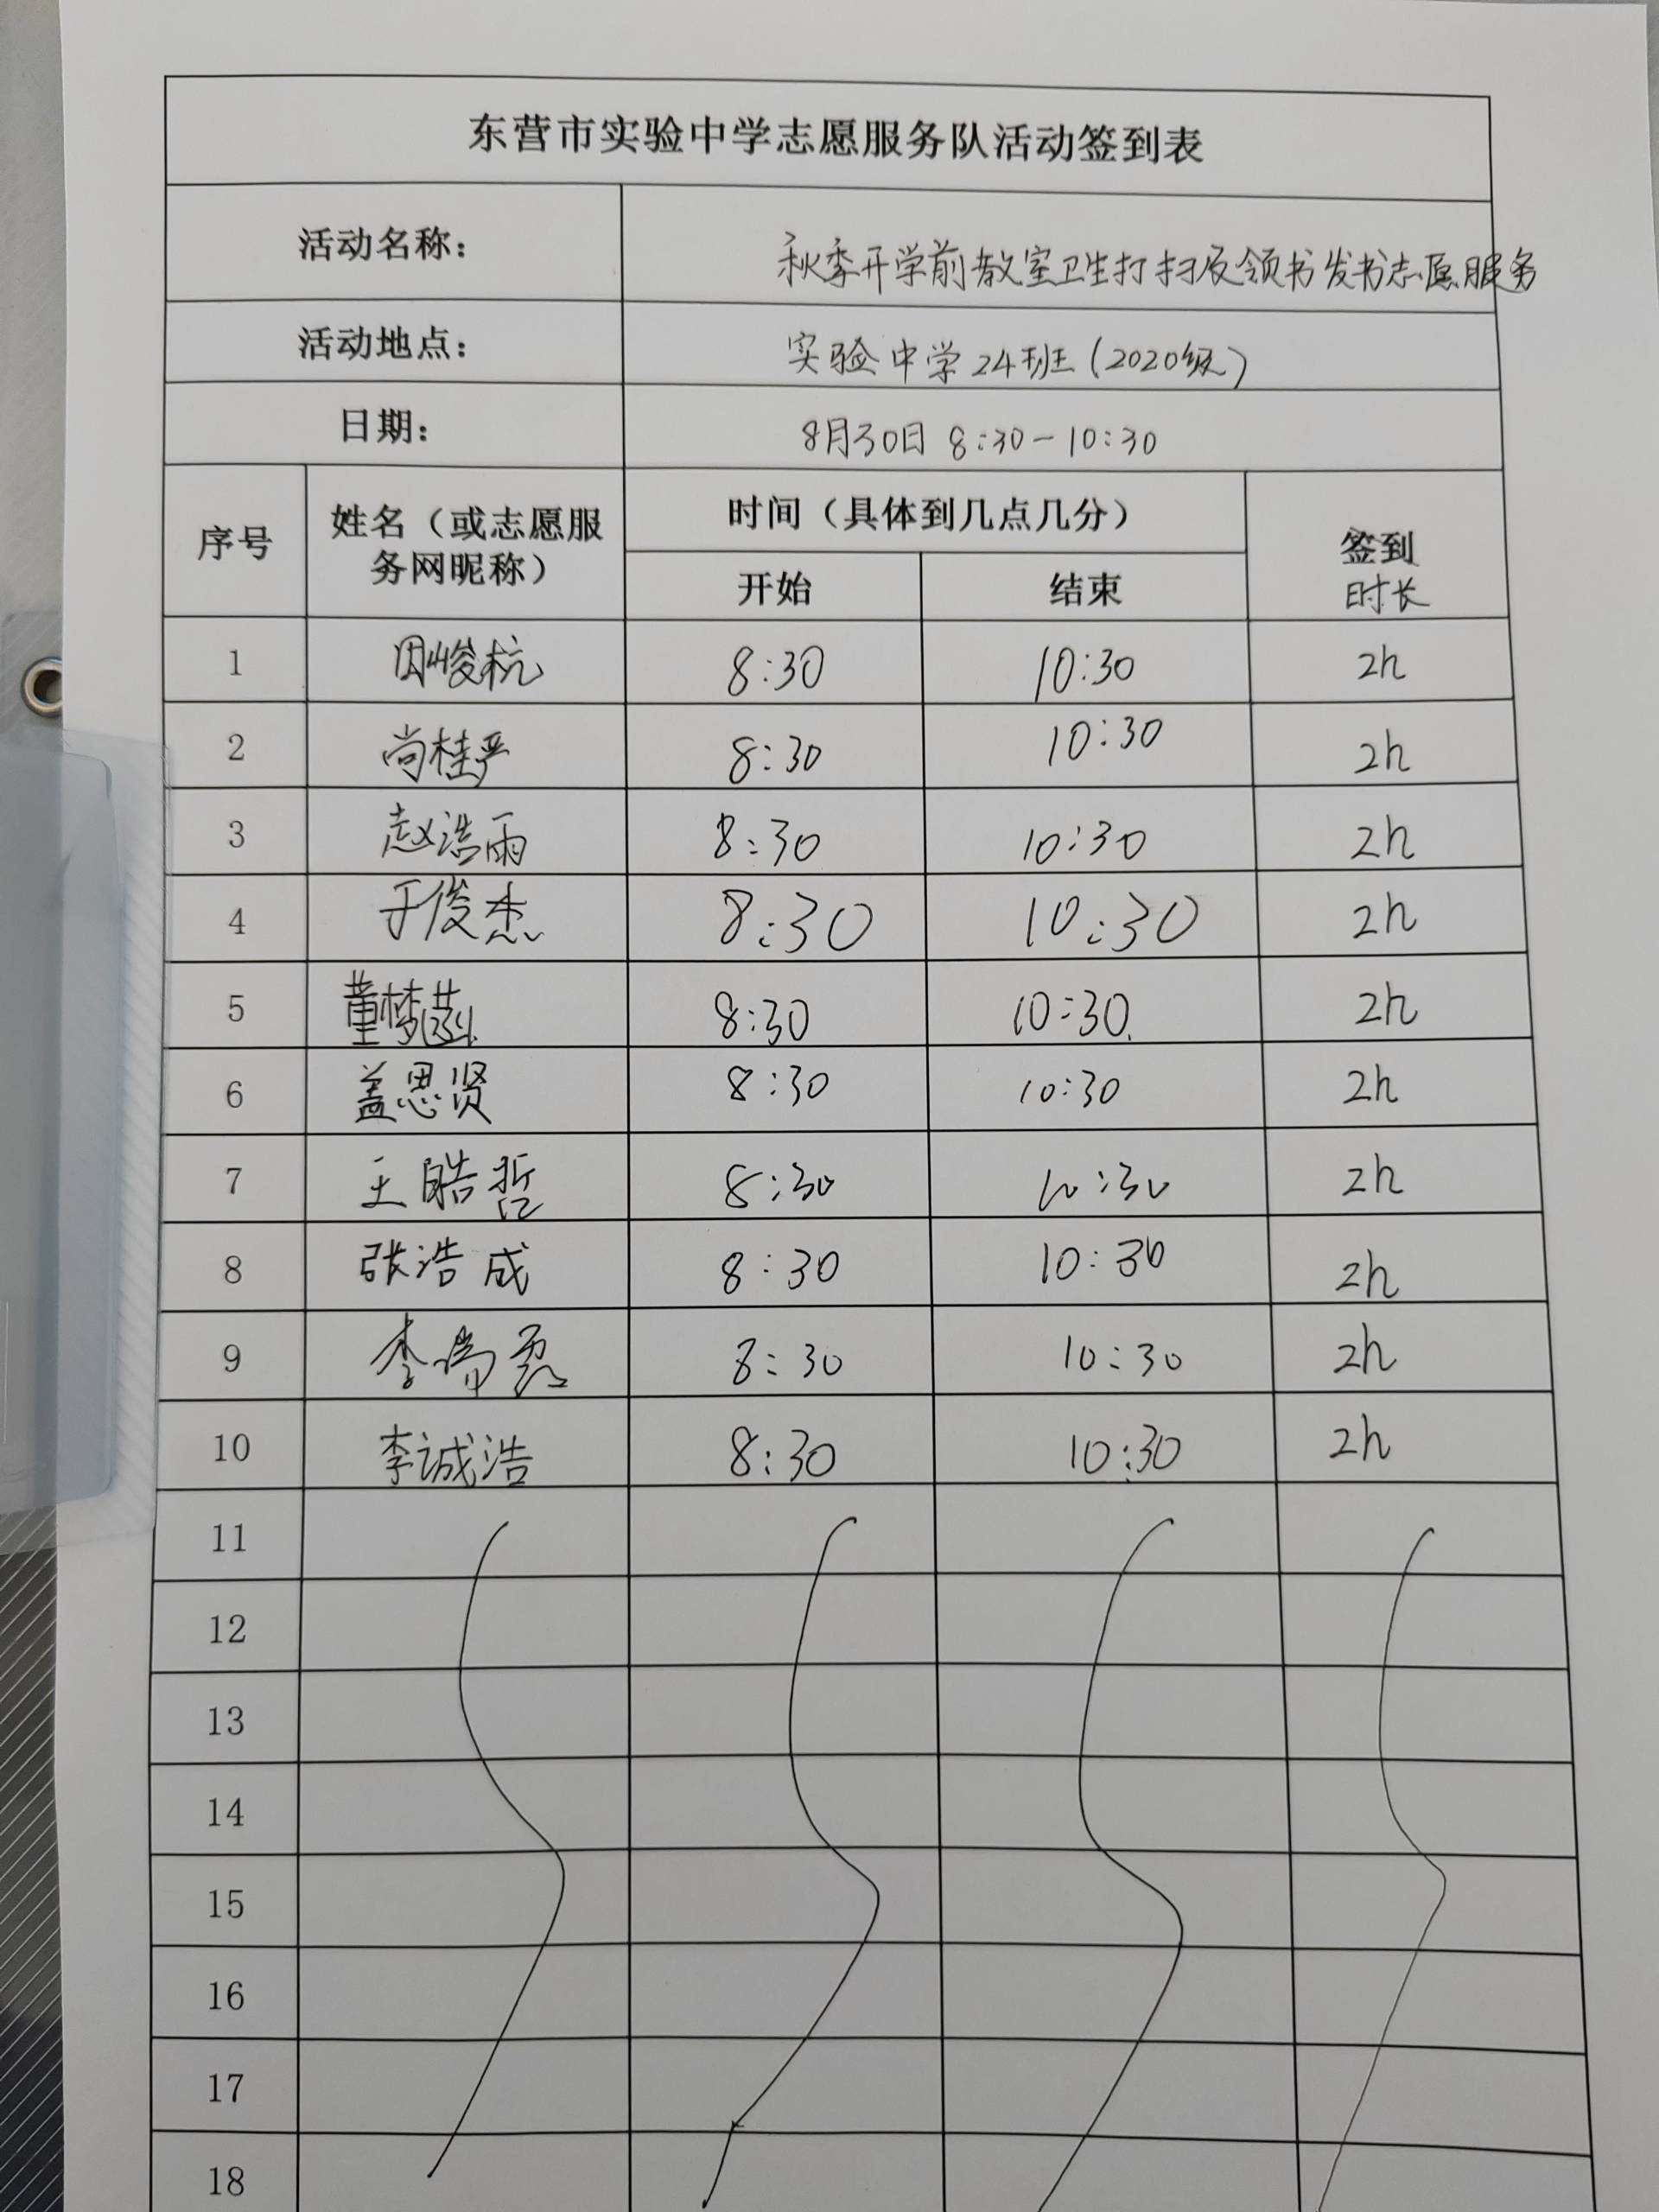 东营市实验中学志愿服务队活动签到表
活动名称： 秋季开学前教室卫生打扫及领书发书志愿服务
活动地点： 实验中学24班（2020级）
日期： 8月30日 8:30-10:30
序号 姓名（或志愿服务网昵称） 时间（具体到几点几分） 签到时长
开始 结束
1 周峻杭 8:30 10:30 2h
2 尚桂严 8:30 10:30 2h
3 赵浩雨 8:30 10:30 2h
4 于俊杰 8:30 10:30 2h
5 董梦菡 8:30 10:30 2h
6 盖思贤 8:30 10:30 2h
7 王皓哲 8:30 10:30 2h
8 张浩成 8:30 10:30 2h
9 李 8:30 10:30 2h
10 李诚浩 8:30 10:30 2h
11
12
13
14
15
16
17
18